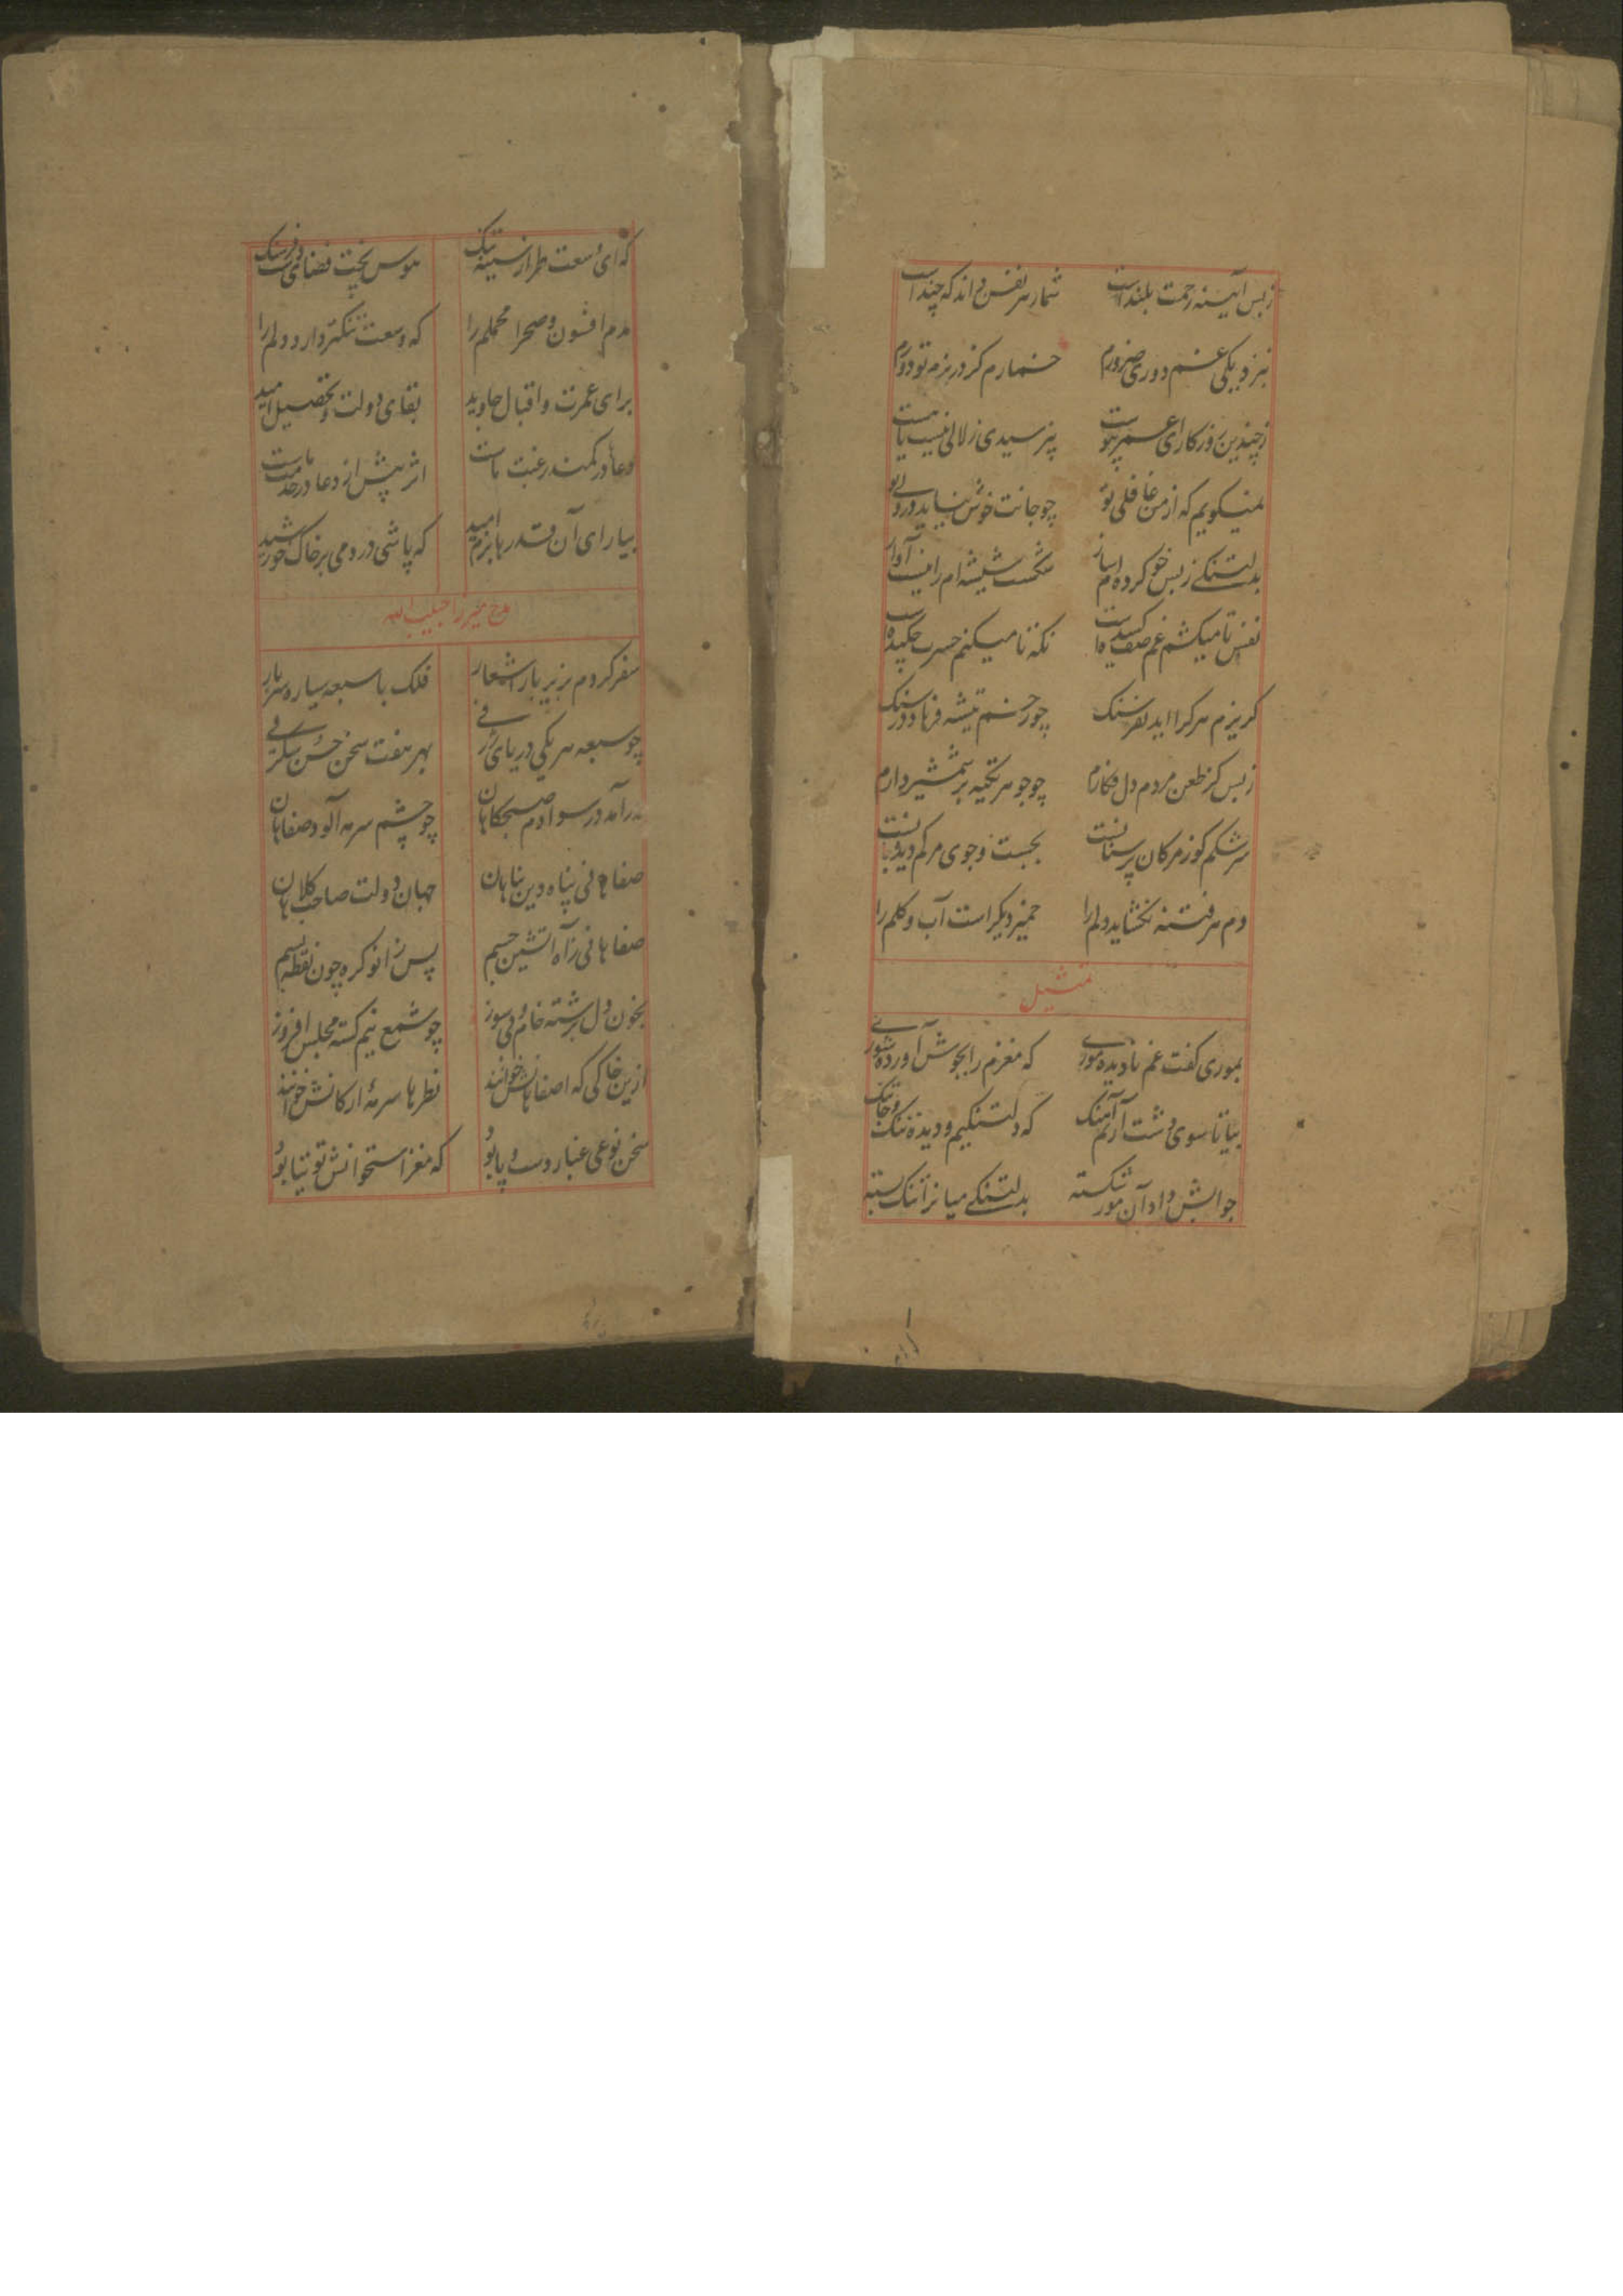 زبس آیینه رحمت بلند است شمار هر نفس داند که چند است
بنزدیکی غم دوری ضرورم خمارم کز در بزم تو دورم
ز چندین روزکار ای عمر پیوست نپرسیدی زلالی نیست یا هست
نمیکویم که از من غافلی تو چو جانت خوش نیاید در دلی تو
بدلتنکی ز بس خو کرده ام ساز شکست شیشه ام را نیست آواز
نفس تا میکشم غم صف کشیده است نکه تا میکنم حسرت چکیده است
کریزم هر کرا اید بفرسنک چو زخم تیشه فرهاد در سنک
زبس کز طعن مردم دل فکارم چو جوهر تکیه بر شمشیر دارم
سرشکم کوز مژکان پر سنانست بجست وجوی مرکم دیده بانست
دم هر فتنه نکشاید دلم را خمیر دیکر است آب و کلم را
تمثیل
بموری کفت غم نادیده موری که مغزم را بجوش آورده شوری
بیا تا سوی دشت آریم آهنک که دلتنکیم و دیده تنک و جا تنک
جوابش داد آن مور شکسته بدلتنکی میان را تنک بسته
که ای وسعت طراز سینه تنک هوس پخت فضای فرسنک
مدم افسون و صحرا محملم را که وسعت تنکتر دارد دلم را
برای عمرت و اقبال جاوید بقای دولت و تحصیل امید
دعا در کمند رغبت ماست اثر پیش از دعا در خدمت ماست
بیارای آن قدر ها بزم امید که پاشی درد می بر خاک خورشید
مدح میرزا حبیب الله
سفر کردم بزیر بار اشعار فلک با سبعه سیاره سربار
چو سبعه هر یکی دریای بهر هفت سخن حسن
در آمد در سوادم صبحکاهان چو چشم سرمه آلود صفاهان
صفاهانی پناه دین پناهان جهان دولت صاحب کلاهان
صفاهانی ز آه آتشین جسم پس زانو کره چون نقطه بسم
بخون دل برشته خام دلسوز چو شمع نیم کشته مجلس افروز
ازین خاکی که اصفاهانش خوانند نظرها سرمه ارکانش خوانند
سخن نوعی غبار دست و پا بود که مغز استخوانش توتیا بود